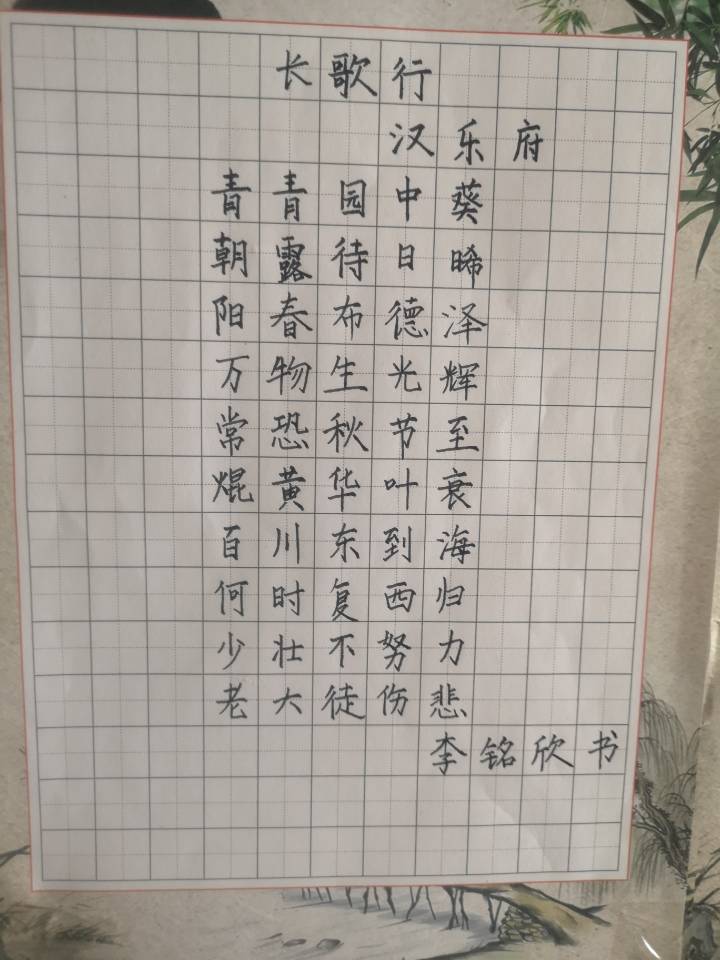 长歌行
汉乐府
青青园中葵
朝露待日晞
阳春布德泽
万物生光辉
常恐秋节至
焜黄华叶衰
百川东到海
何时复西归
少壮不努力
老大徒伤悲
李铭欣书